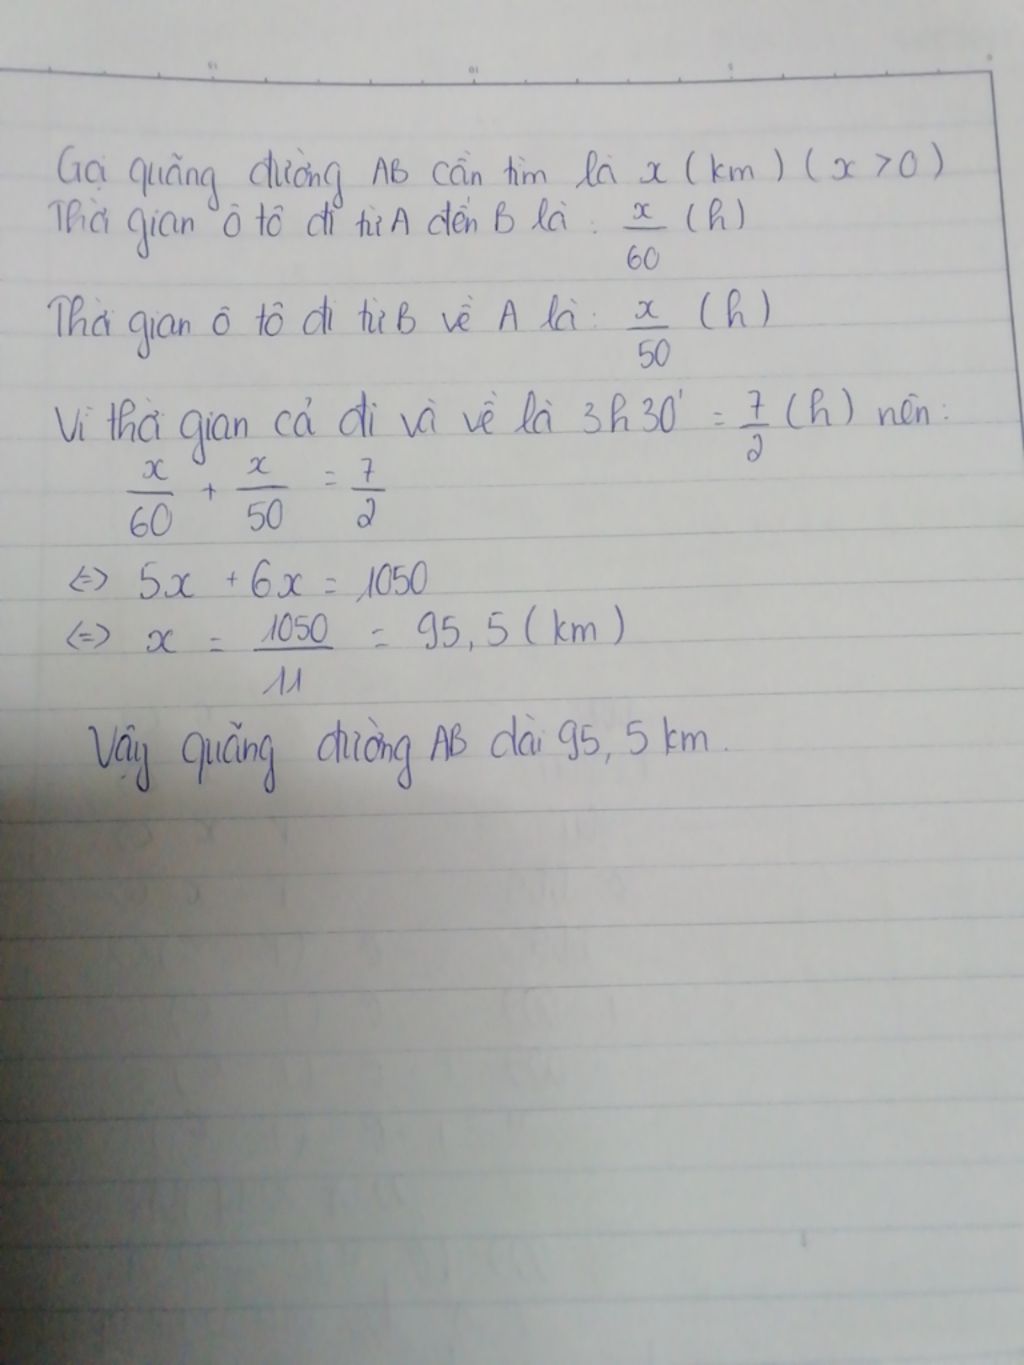 Gọi quãng đường AB cần tìm là x (km) (x > 0)
Thời gian ô tô đi từ A đến B là : x/60 (h)
Thời gian ô tô đi từ B về A là : x/50 (h)
Vì thời gian cả đi và về là 3h30' = 7/2 (h) nên :
x/60 + x/50 = 7/2
<=> 5x + 6x = 1050
<=> x = 1050/11 = 95,5 (km)
Vậy quãng đường AB dài 95,5 km.